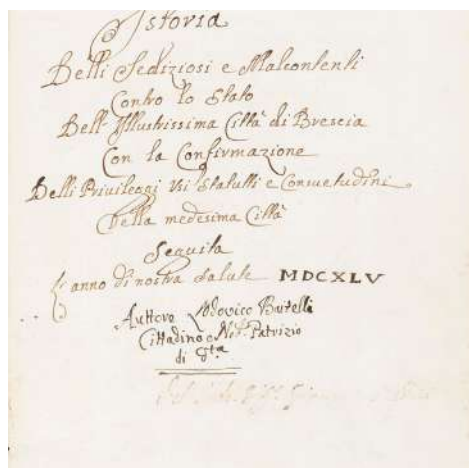 Istoria
Delli Sediziosi e Malcontenti
Contro lo Stato
Dell' Illustrissima Città di Brescia
Con la Confirmazione
Delli Privileggi Usi Statutti e Consuetudini
Della medesima Città
Seguita
L'anno di nostra salute MDCXLV
Auttore Lodovico Baitelli
Cittadino e Not. Patrizio
di